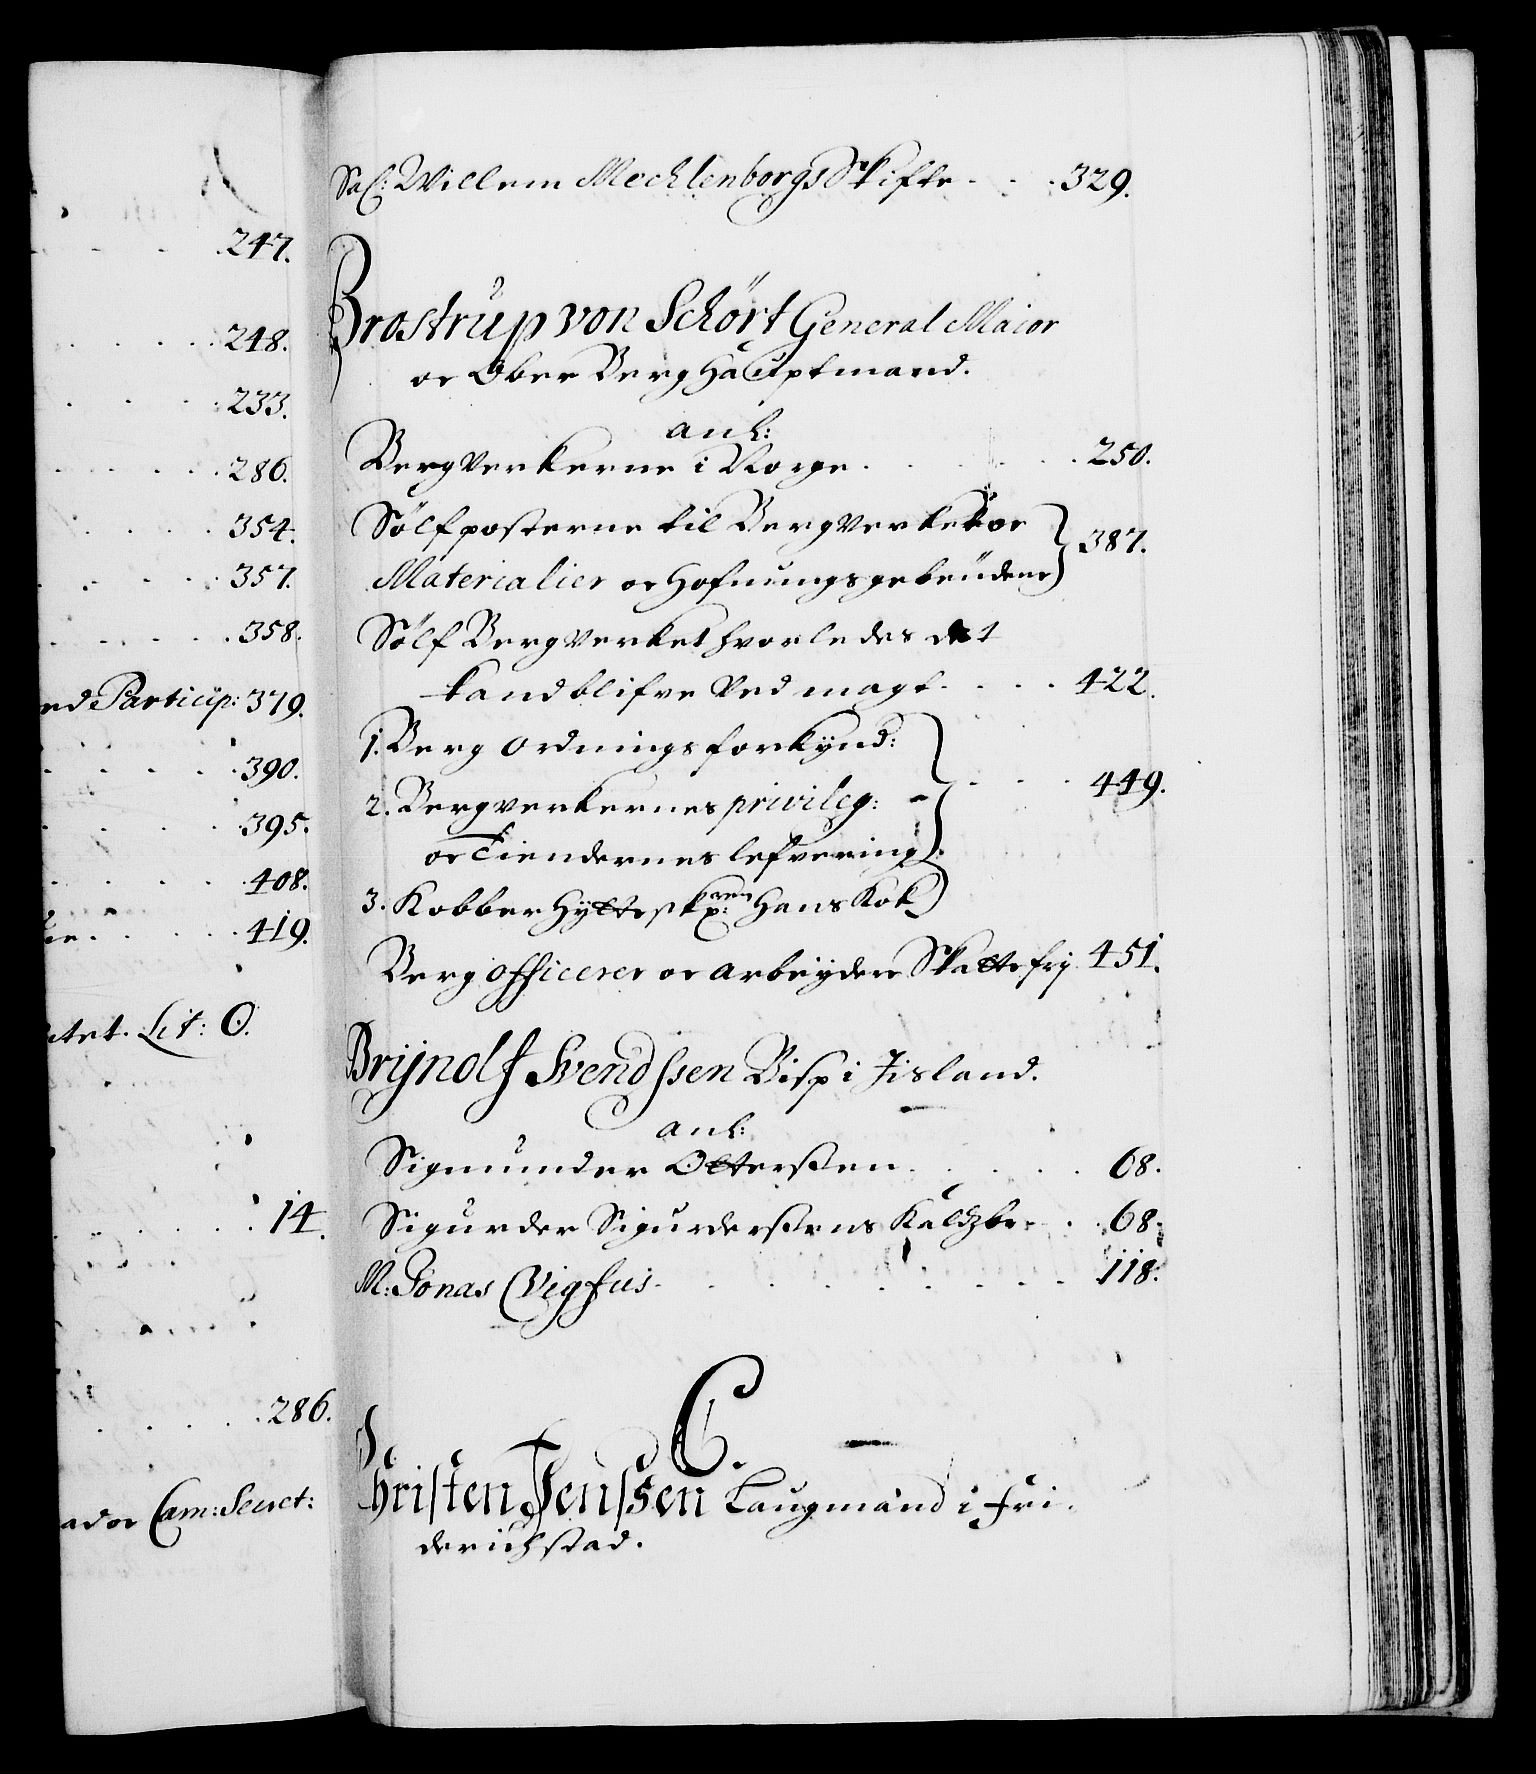 247.
248.
233.
286.
354.
357.
358.
Particip: 379.
390.
395.
408.
419.
Lit: O.
14.
286.
Cam: Secret:
Sal: Willem Mechlenborgs Skifte - - - 329.
Brostrup von Schört General Maior
oc Ober Berghauptmand.
anl:
Bergverkerne i Norge . . . . . 250.
Sölfposterne til Bergverket oc
Materialier oc Hofnungsgebeüdene 387.
Sölf Bergverket hvorledes det
kand blifve ved magt . . . . 422.
1. Berg Ordnings forkÿnd:
2. Bergverkernes privileg: 449.
oc Tiendernes lefvering
3. Kobber Hÿtteskr: Hans Kok
Berg officerer oc arbeÿdere Skattefrij 451.
Brÿnolf Svendssen Bisp i Jisland.
anl:
Sigmunder Ottersen . . . . . 68.
Sigurder Sigurdersens 68.
M: Jonas Vigfus . . . . . . . 118.
C.
Christen Jenssen Laugmand i Fri-
derichstad.